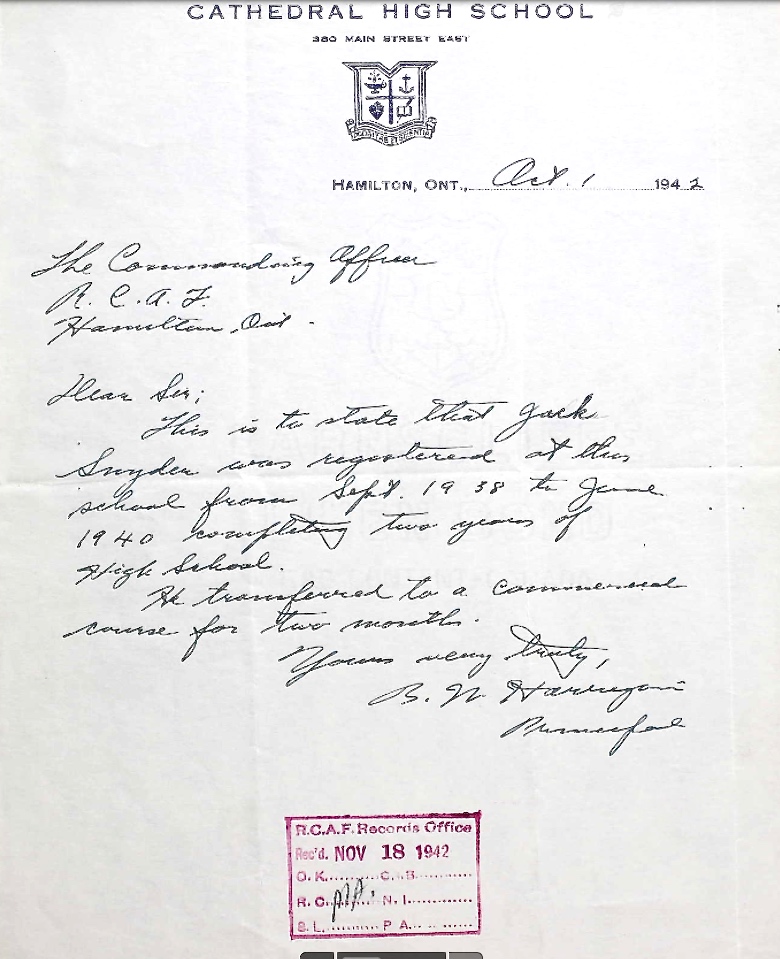 CATHEDRAL HIGH SCHOOL
380 MAIN STREET EAST
HAMILTON, ONT., Oct. 1 1942
The Commanding Officer
R. C. A. F.
Hamilton, Ont.
Dear Sir;
This is to state that Jack
Snyder was registered at this
school from Sept. 1938 to June
1940 completing two years of
High School.
He transferred to a commercial
course for two months.
Yours very truly,
B. W. Harrigan
Principal
R.C.A.F. Records Office
Rec'd. NOV 18 1942
O. K. C. I. B.
R. C. N. I.
S. L. P A.